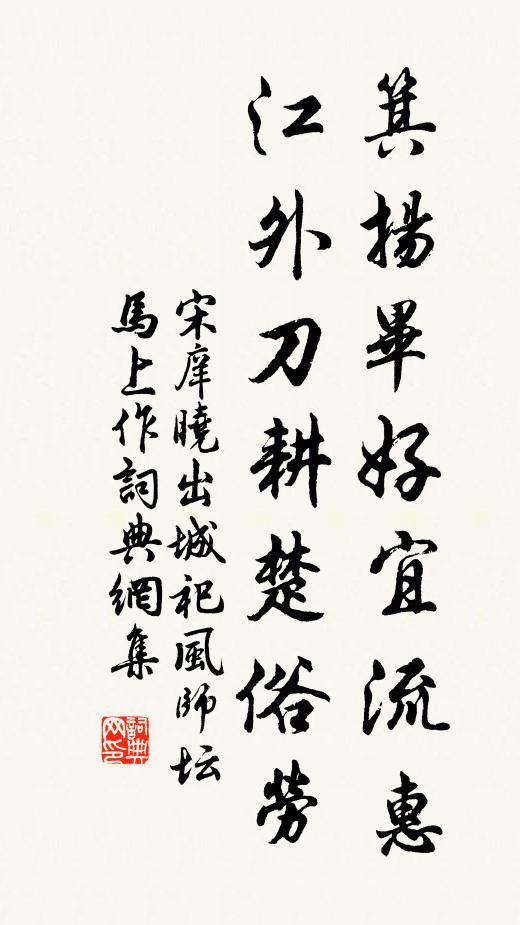 箕揚畢好宜流惠
江外刀耕楚俗勞
宋庠曉出城祀風師坛
馬上作詞典網集
詞典網印